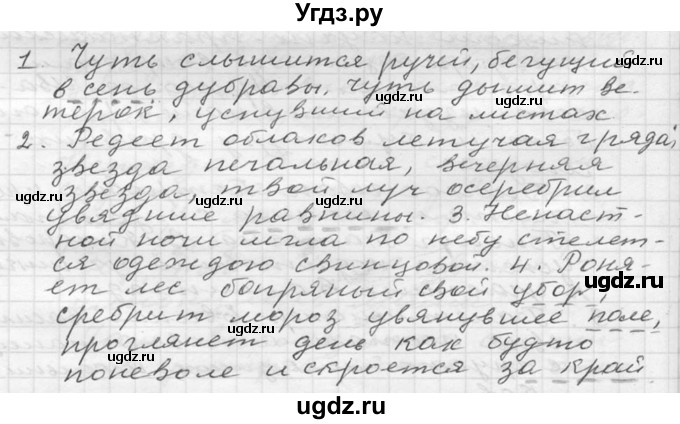 Угдз.ру
1 Чуть слышится ручей, бегущий
в сень дубравы. Чуть дымит ве-
терок, уснувший на листах
2. Редеет облаков летучая гряда;
звезда печальная, вечерняя
звезда, твой луч осеребрил
увядшие равнины. 3. Ненаст-
ной ночи мгла по небу стелет-
ся одеждою свинцовой. 4. Роня-
ет лес багряный свой убор,
сребрит мороз увянувшее поле,
проглянет день как будто
поневоле и скроется за край
ugdz.ru
ugdz.ru
ugdz.ru
ugdz.ru
ugdz.ru
ugdz.ru
ugdz.ru
ugdz.ru
ugdz.ru
ugdz.ru
ugdz.ru